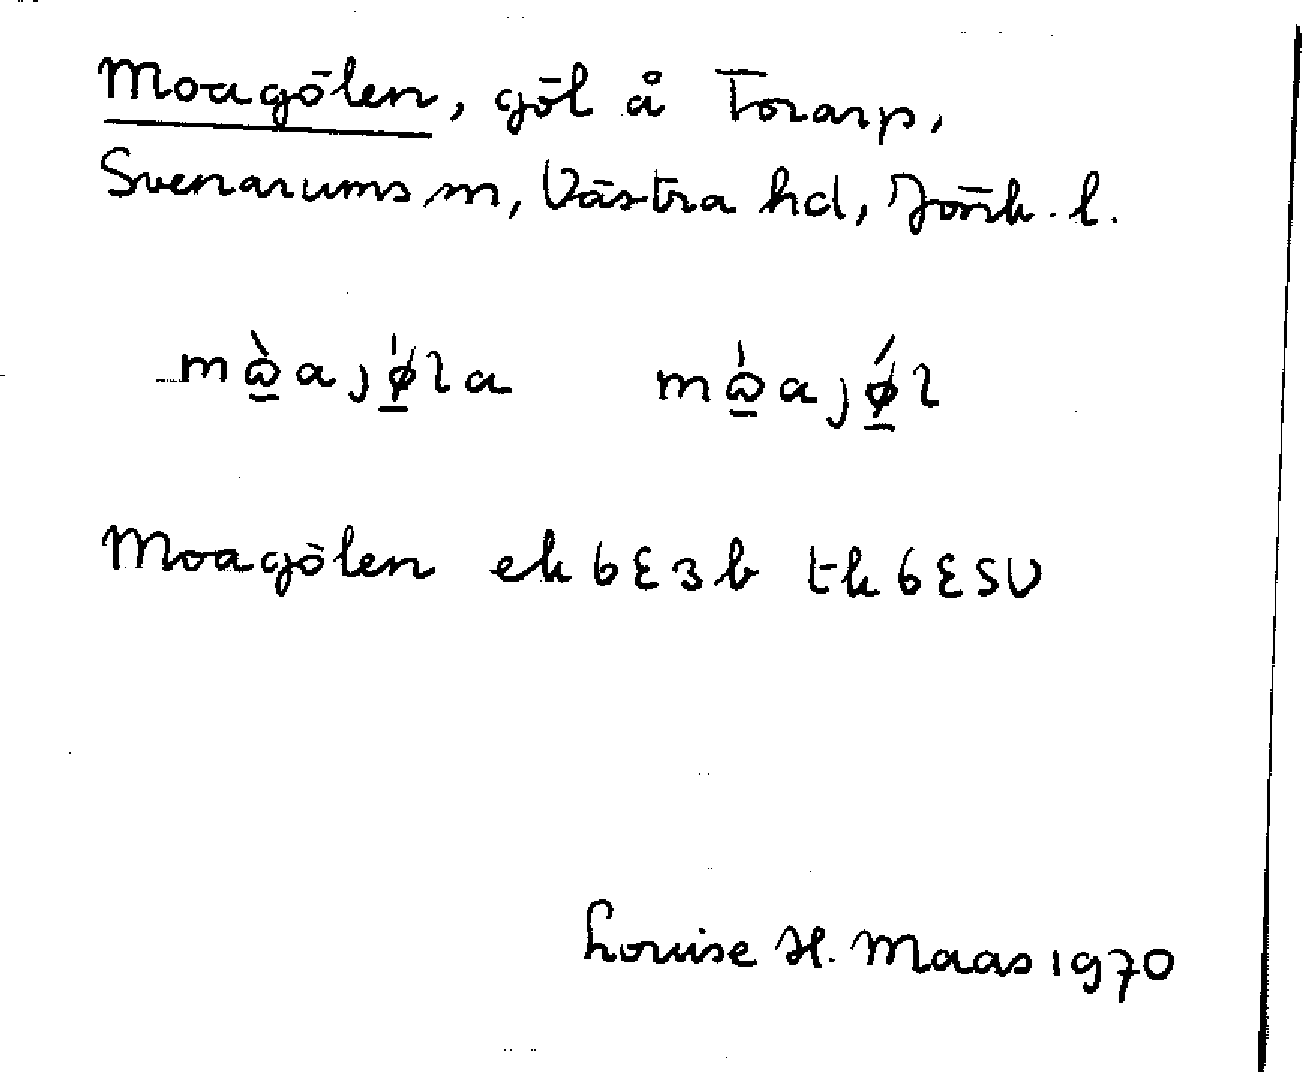 Moagölen, göl å Torarp,
Svenarums sn, Västra hd, Jönk. l.
Moagölen ek 6E3b tk 6E5V
Louise H. Maas 1970